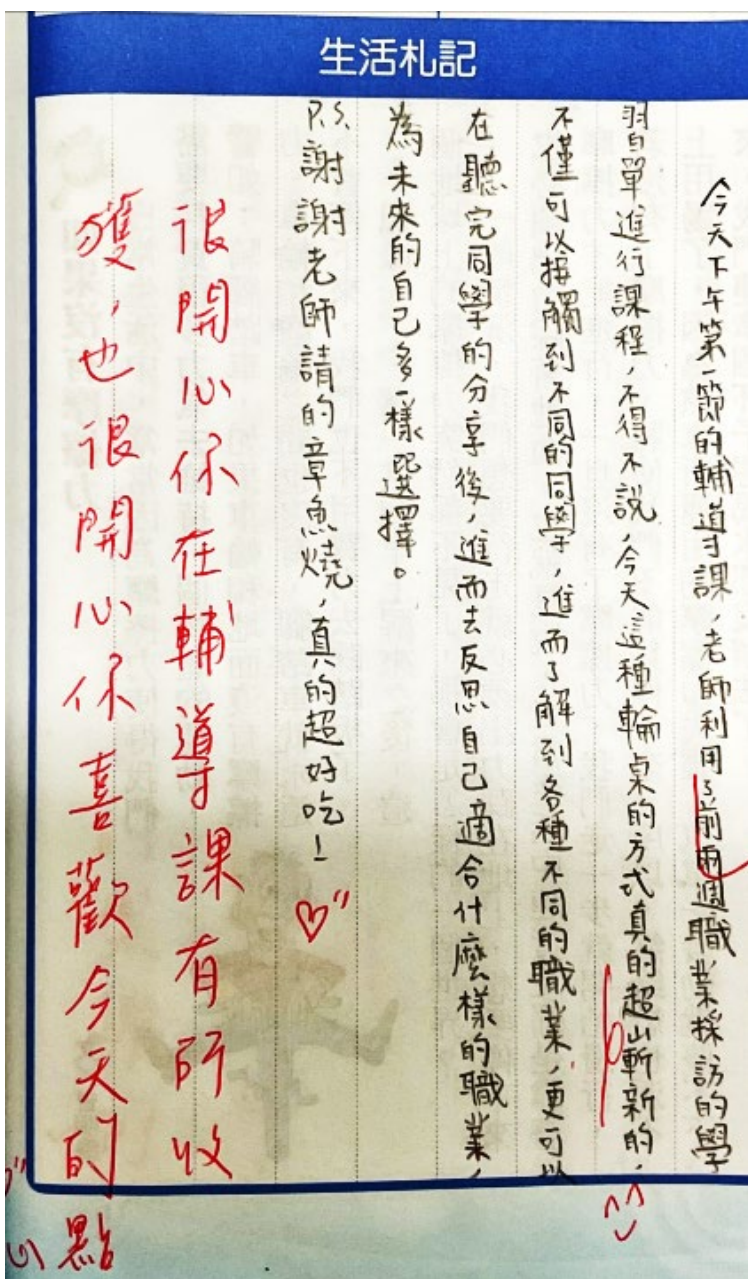 生活札記
今天下午第一節的輔導課,老師利用了前兩週職業採訪的學
習單進行課程,不得不說,今天這種輪桌的方式真的超嶄新的,
不僅可以接觸到不同的同學,進而了解到各種不同的職業,更可以
在聽完同學的分享後,進而去反思自己適合什麼樣的職業,
為未來的自己多一樣選擇。
P.S.謝謝老師請的章魚燒,真的超好吃!
很開心你在輔導課有所收
獲,也很開心你喜歡今天的點